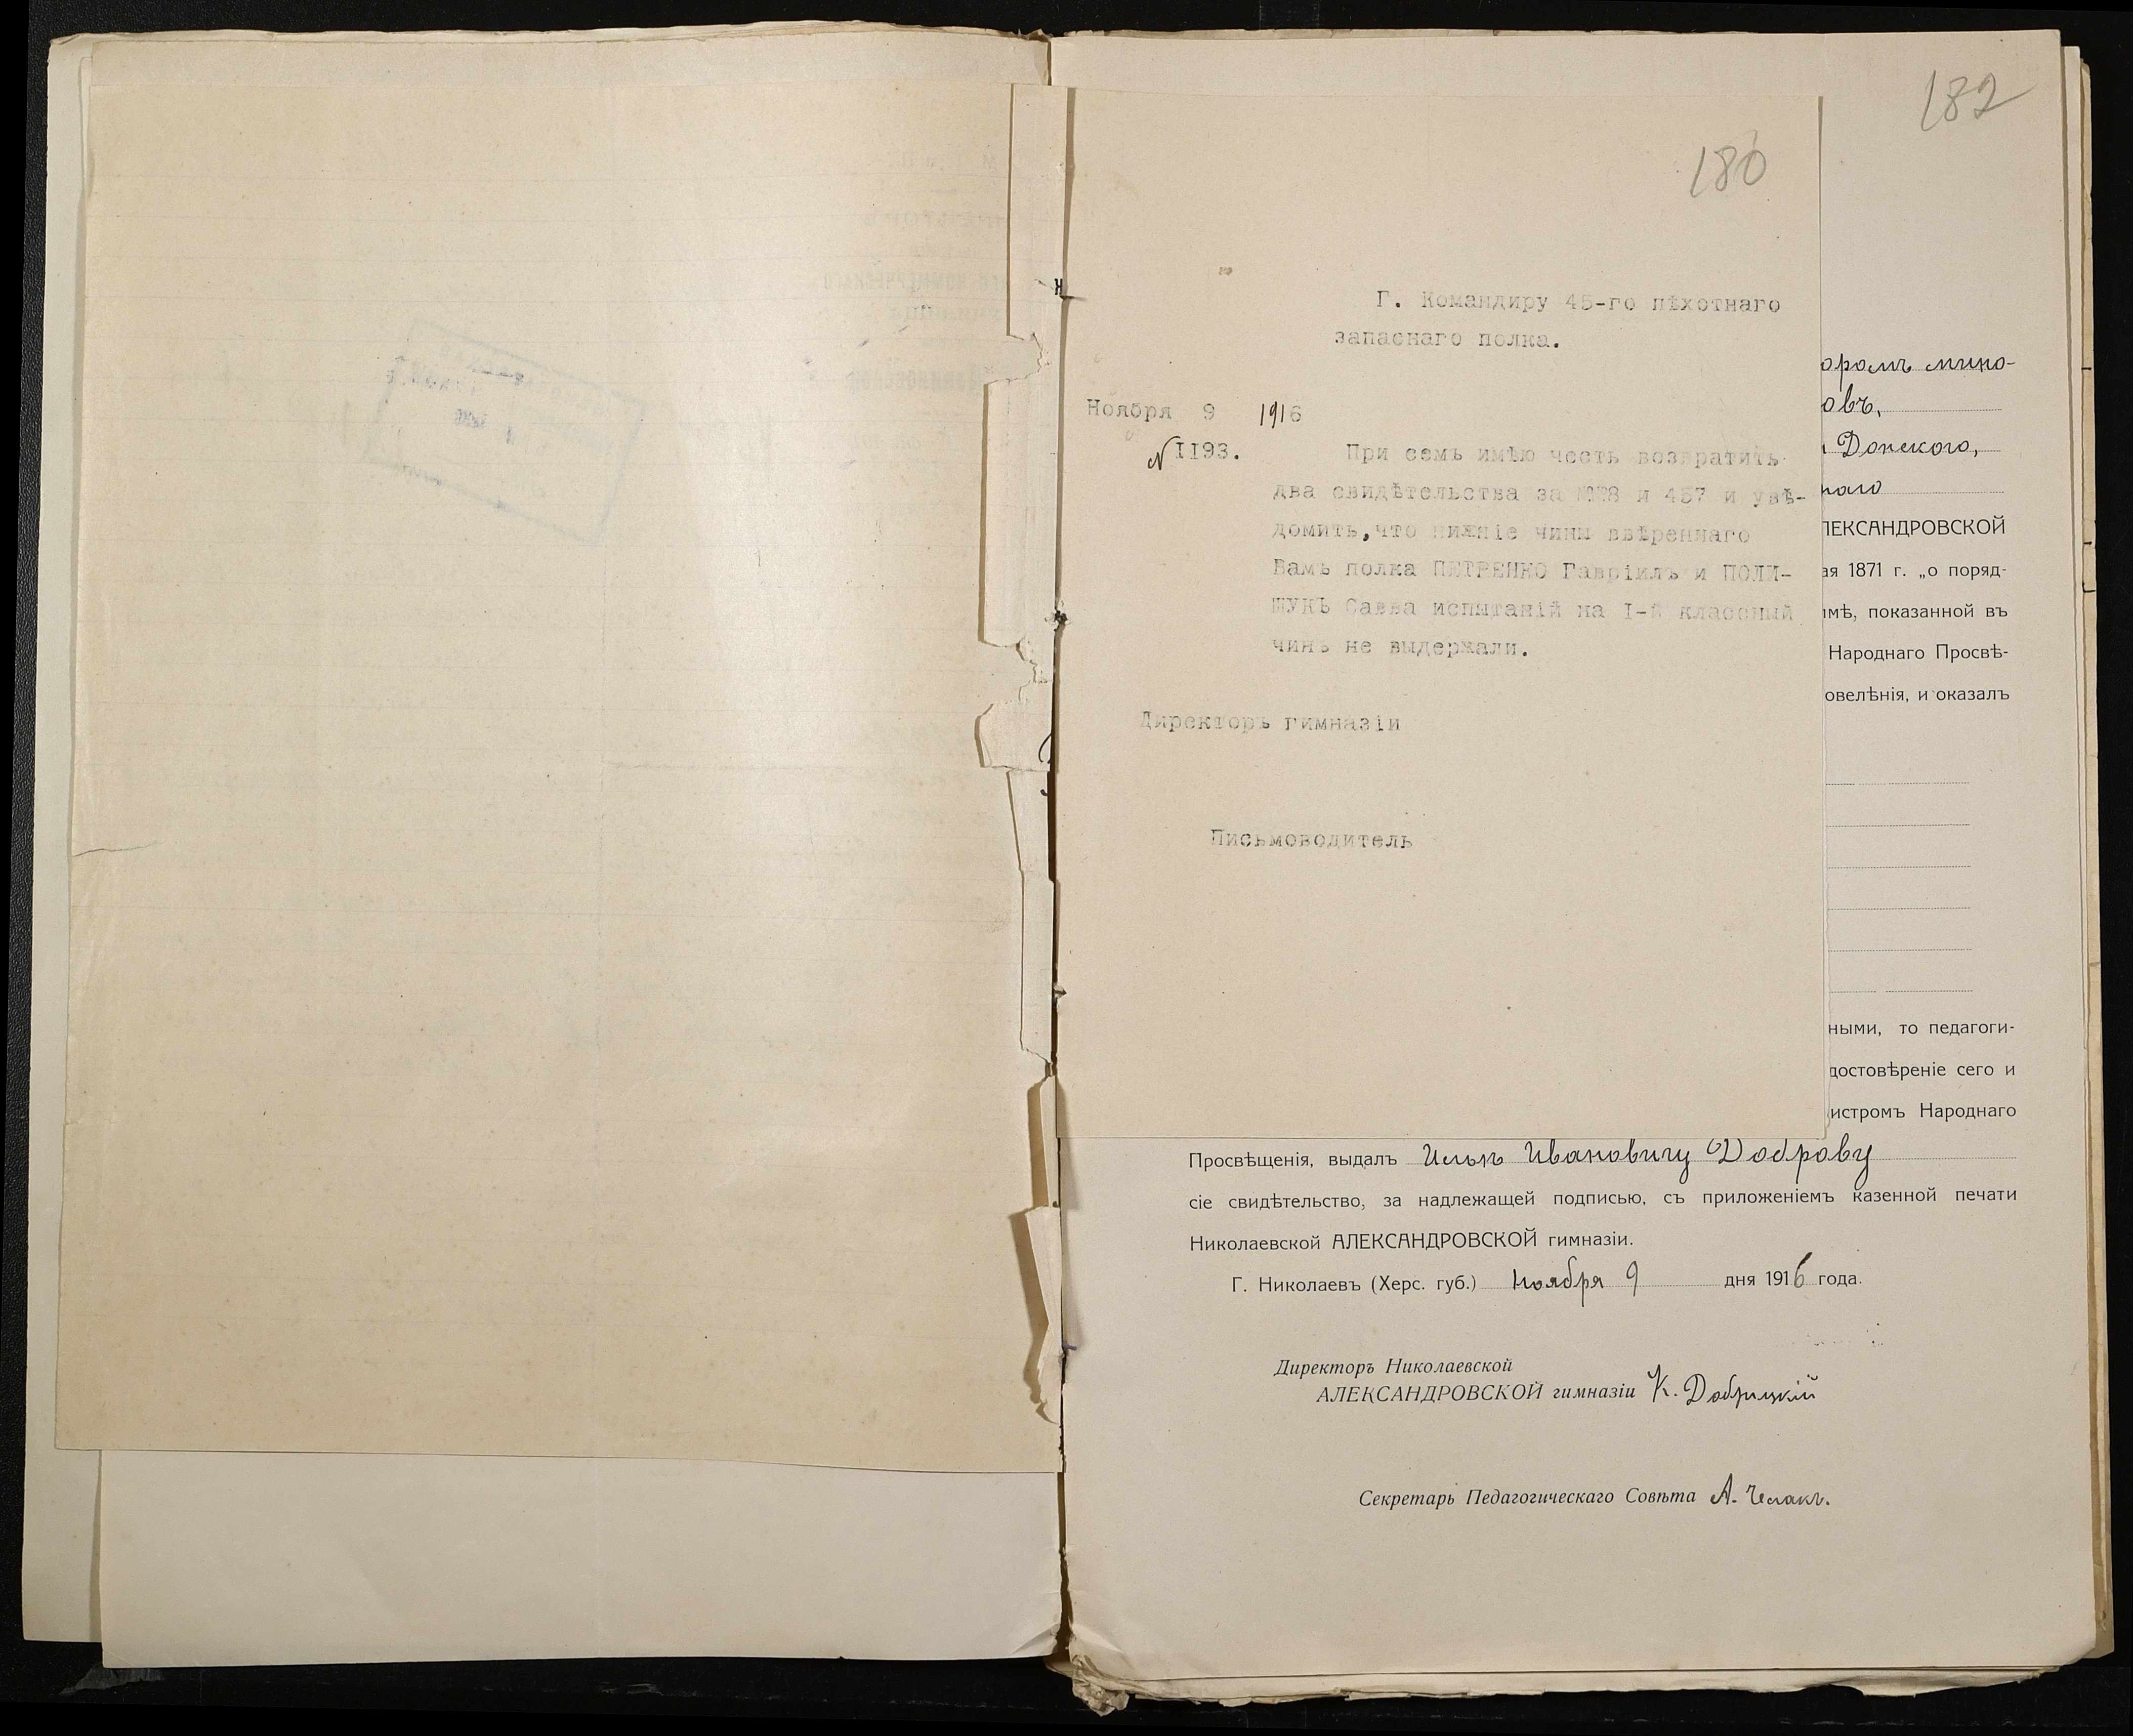 182
180
Г. Командиру 45-го пѣхотнаго
запаснаго полка.
Ноября 9 1916
№ 1193.
При семъ имѣю честь возвратить
два свидѣтельства за №№8 и 457 и увѣ-
домить, что нижніе чины ввѣреннаго
Вамъ полка ПЕТРЕНКО Гавріилъ и ПОЛИ-
ЩУКЪ Савва испытаній на I-й классный
чинъ не выдержали.
Директоръ гимназіи
Письмоводитель
оромъ мино-
овъ,
Донского,
наго
ЛЕКСАНДРОВСКОЙ
ая 1871 г. „о поряд-
мѣ, показанной въ
Народнаго Просвѣ-
овелѣнія, и оказалъ
ными, то педагоги-
достовѣреніе сего и
истромъ Народнаго
Просвѣщенія, выдалъ Ильѣ Ивановичу Доброву
сіе свидѣтельство, за надлежащей подписью, съ приложеніемъ казенной печати
Николаевской АЛЕКСАНДРОВСКОЙ гимназіи.
Г. Николаевъ (Херс. губ.) Ноября 9 дня 1916 года.
Директоръ Николаевской
АЛЕКСАНДРОВСКОЙ гимназіи К. Добрицкій
Секретарь Педагогическаго Совѣта А.